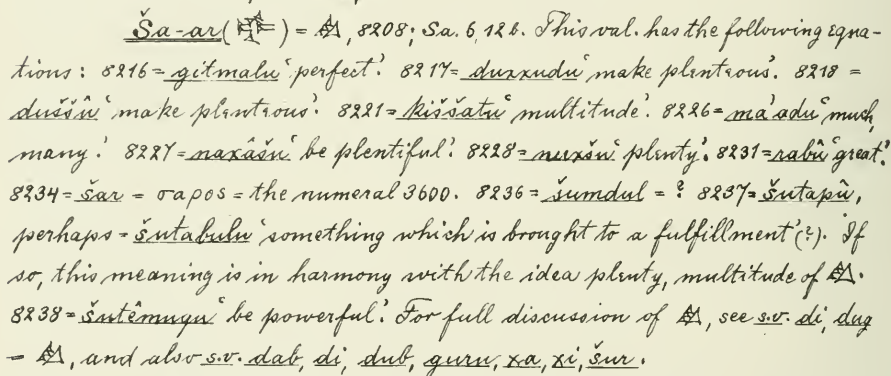 Ša-ar (𒊬) = 𒊹, 8208; Sa. 6, 12 b. This val. has the following equa-
tions: 8216 = gitmalu ‘perfect’. 8217 = duxxudu ‘make plenteous’. 8218 =
duššû ‘make plenteous’. 8221 = kiššatu ‘multitude’. 8226 = ma'adu ‘much,
many’. 8227 = naxâšu ‘be plentiful’. 8228 = nuxšu ‘plenty’. 8231 = rabû ‘great’.
8234 = šar = σαρος = the numeral 3600. 8236 = šumdul = ? 8237 = šutapû,
perhaps = šutabulu ‘something which is brought to a fulfillment’(?). If
so, this meaning is in harmony with the idea plenty, multitude of 𒊹.
8238 = šutêmuqu ‘be powerful’. For full discussion of 𒊹, see s.v. di, dug
= 𒊹, and also s.v. dab, di, dub, guru, xa, xi, šur.